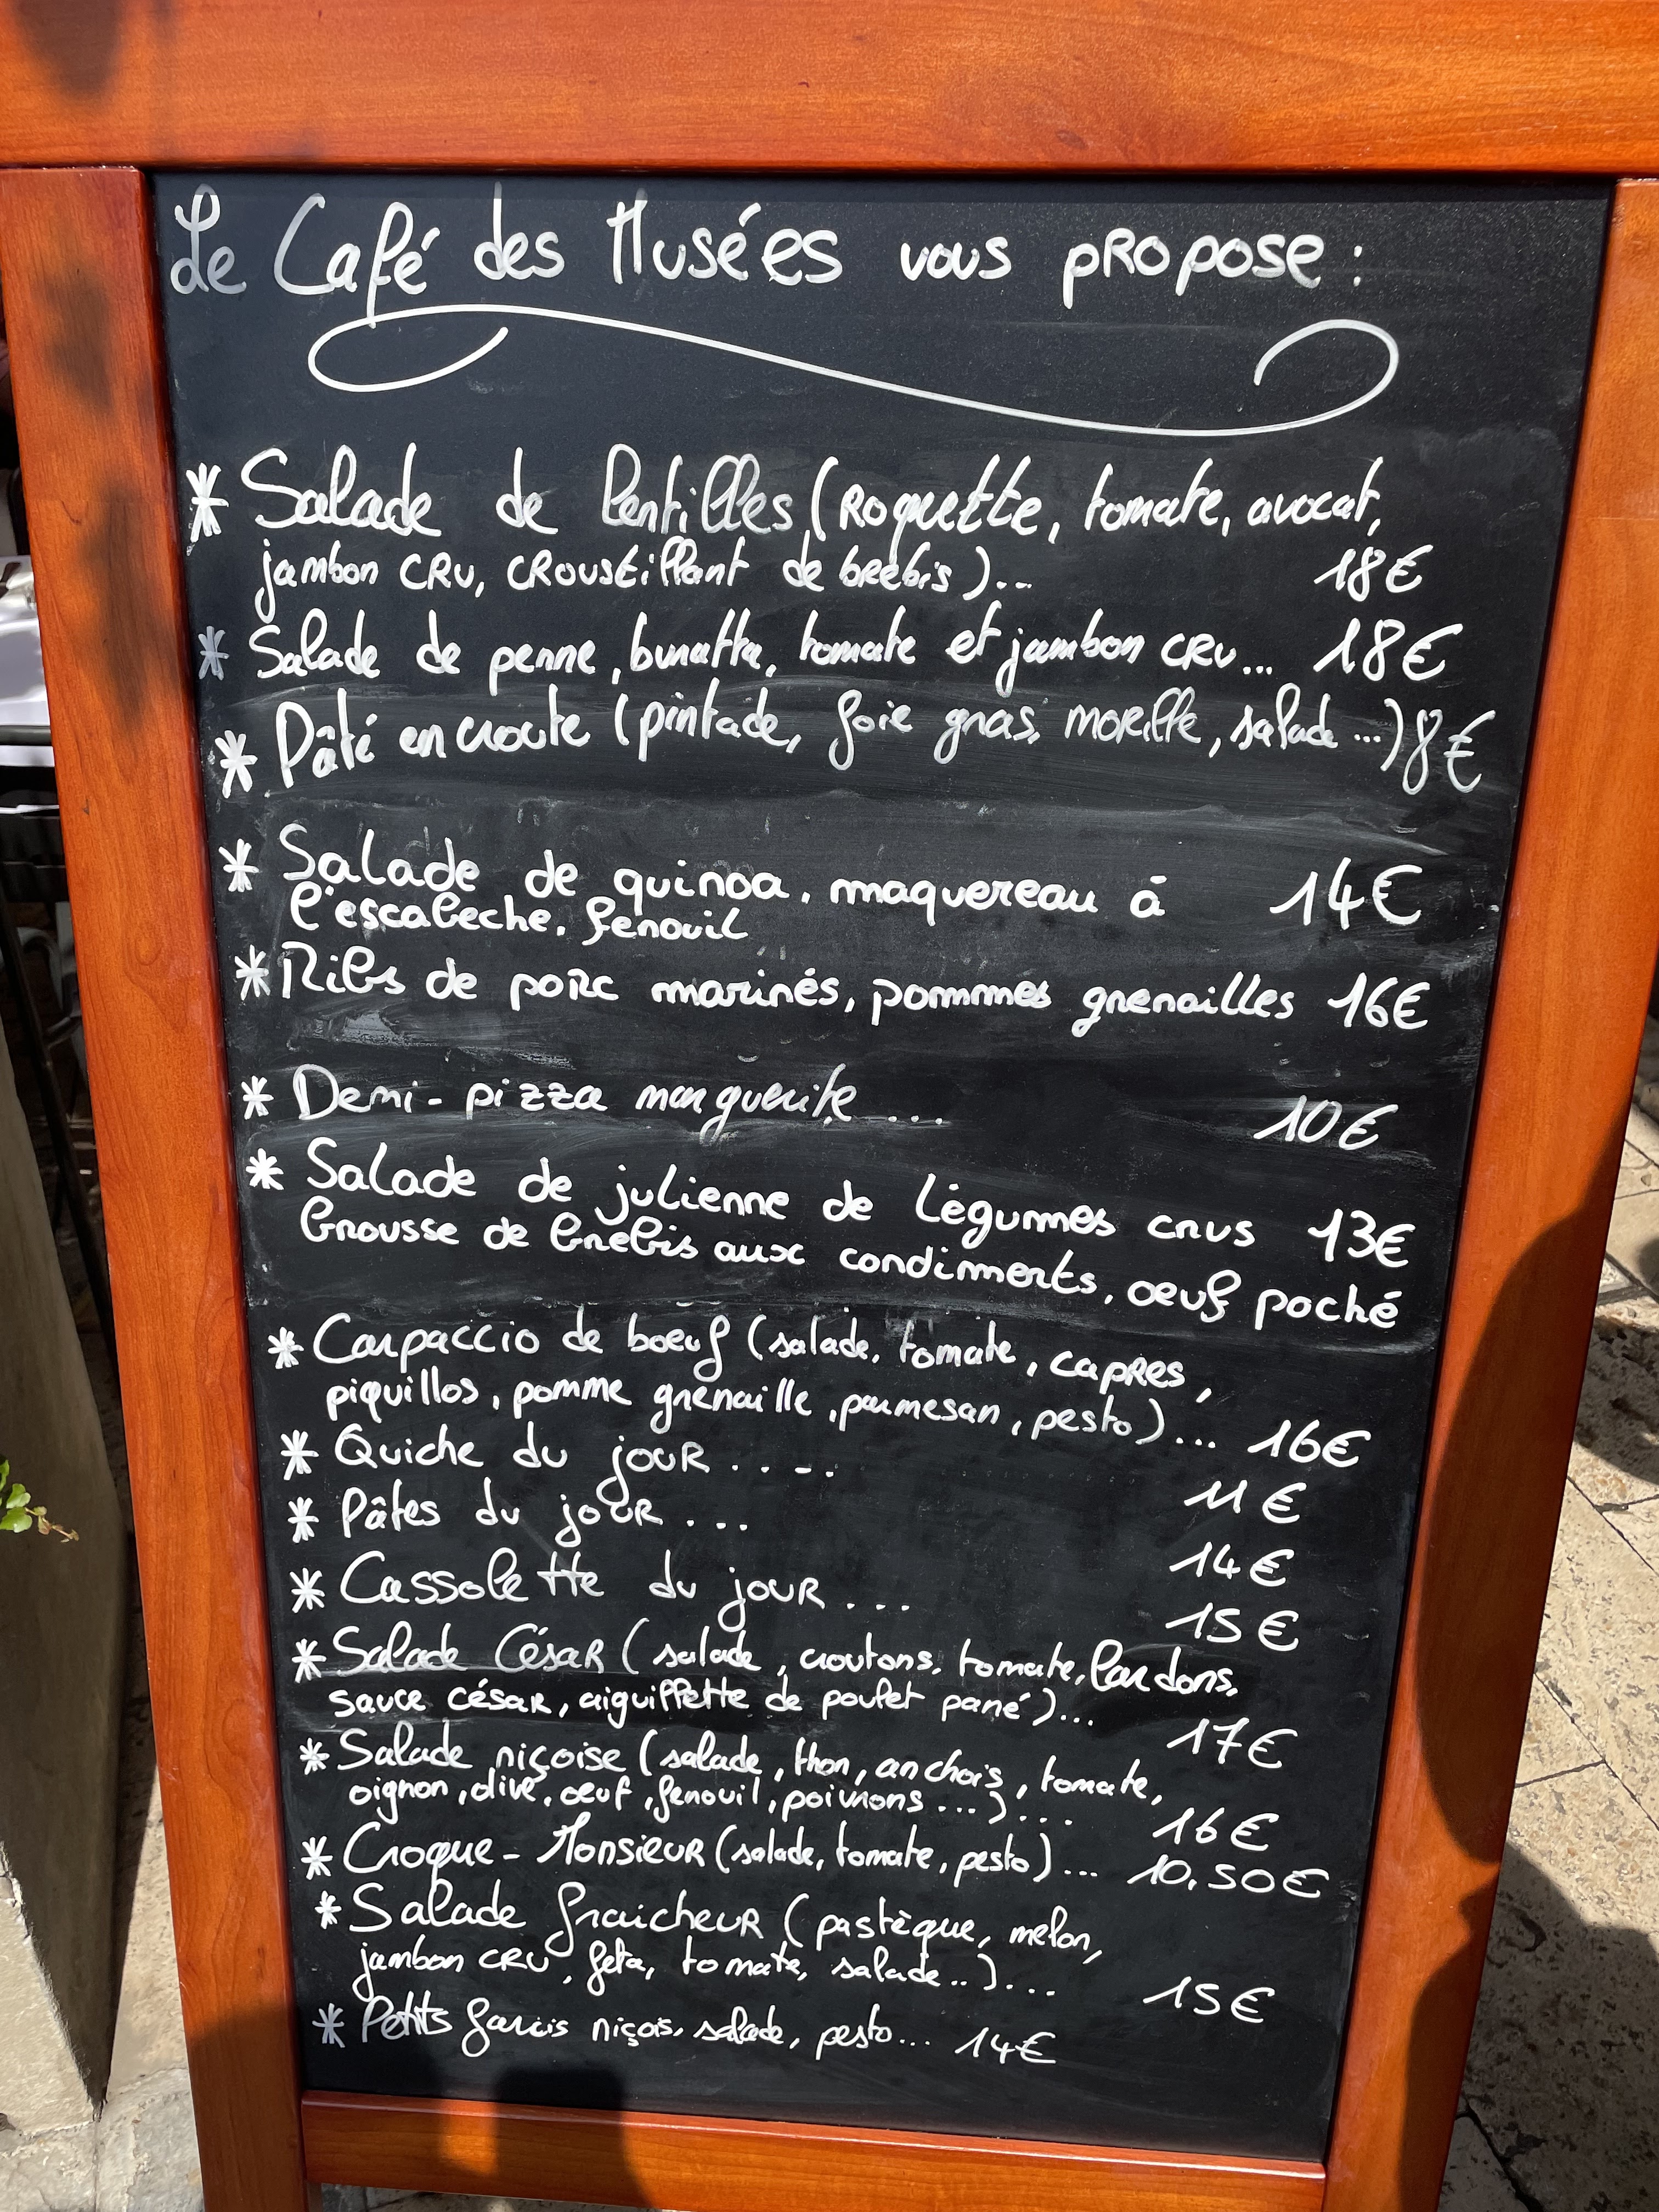 Le Café des Musées vous propose :
* Salade de lentilles (Roquette, tomate, avocat,
jambon cru, croustillant de brebis)... 18€
* Salade de penne, burratta, tomate et jambon cru... 18€
* Pâté en croute (pintade, foie gras, morille, salade ...) 8€
* Salade de quinoa, maquereau à 14€
l'escabeche, fenouil
* Ribs de porc marinés, pommmes grenailles 16€
* Demi-pizza marguerite ... 10€
* Salade de julienne de légumes crus 13€
brousse de brebis aux condiments, oeuf poché
* Carpaccio de boeuf (salade, tomate, capres,
piquillos, pomme grenaille, parmesan, pesto)... 16€
* Quiche du jour.... 11€
* Pâtes du jour... 14€
* Cassolette du jour... 15€
* Salade César (salade, croutons, tomate, lardons,
sauce césar, aiguillette de poulet pané)... 17€
* Salade niçoise (salade, thon, anchois, tomate,
oignon, olive, oeuf, fenouil, poivrons ...)... 16€
* Croque-Monsieur (salade, tomate, pesto)... 10,50€
* Salade fraicheur (pastèque, melon,
jambon cru, feta, tomate, salade..)... 15€
* Petits farcis niçois, salade, pesto... 14€